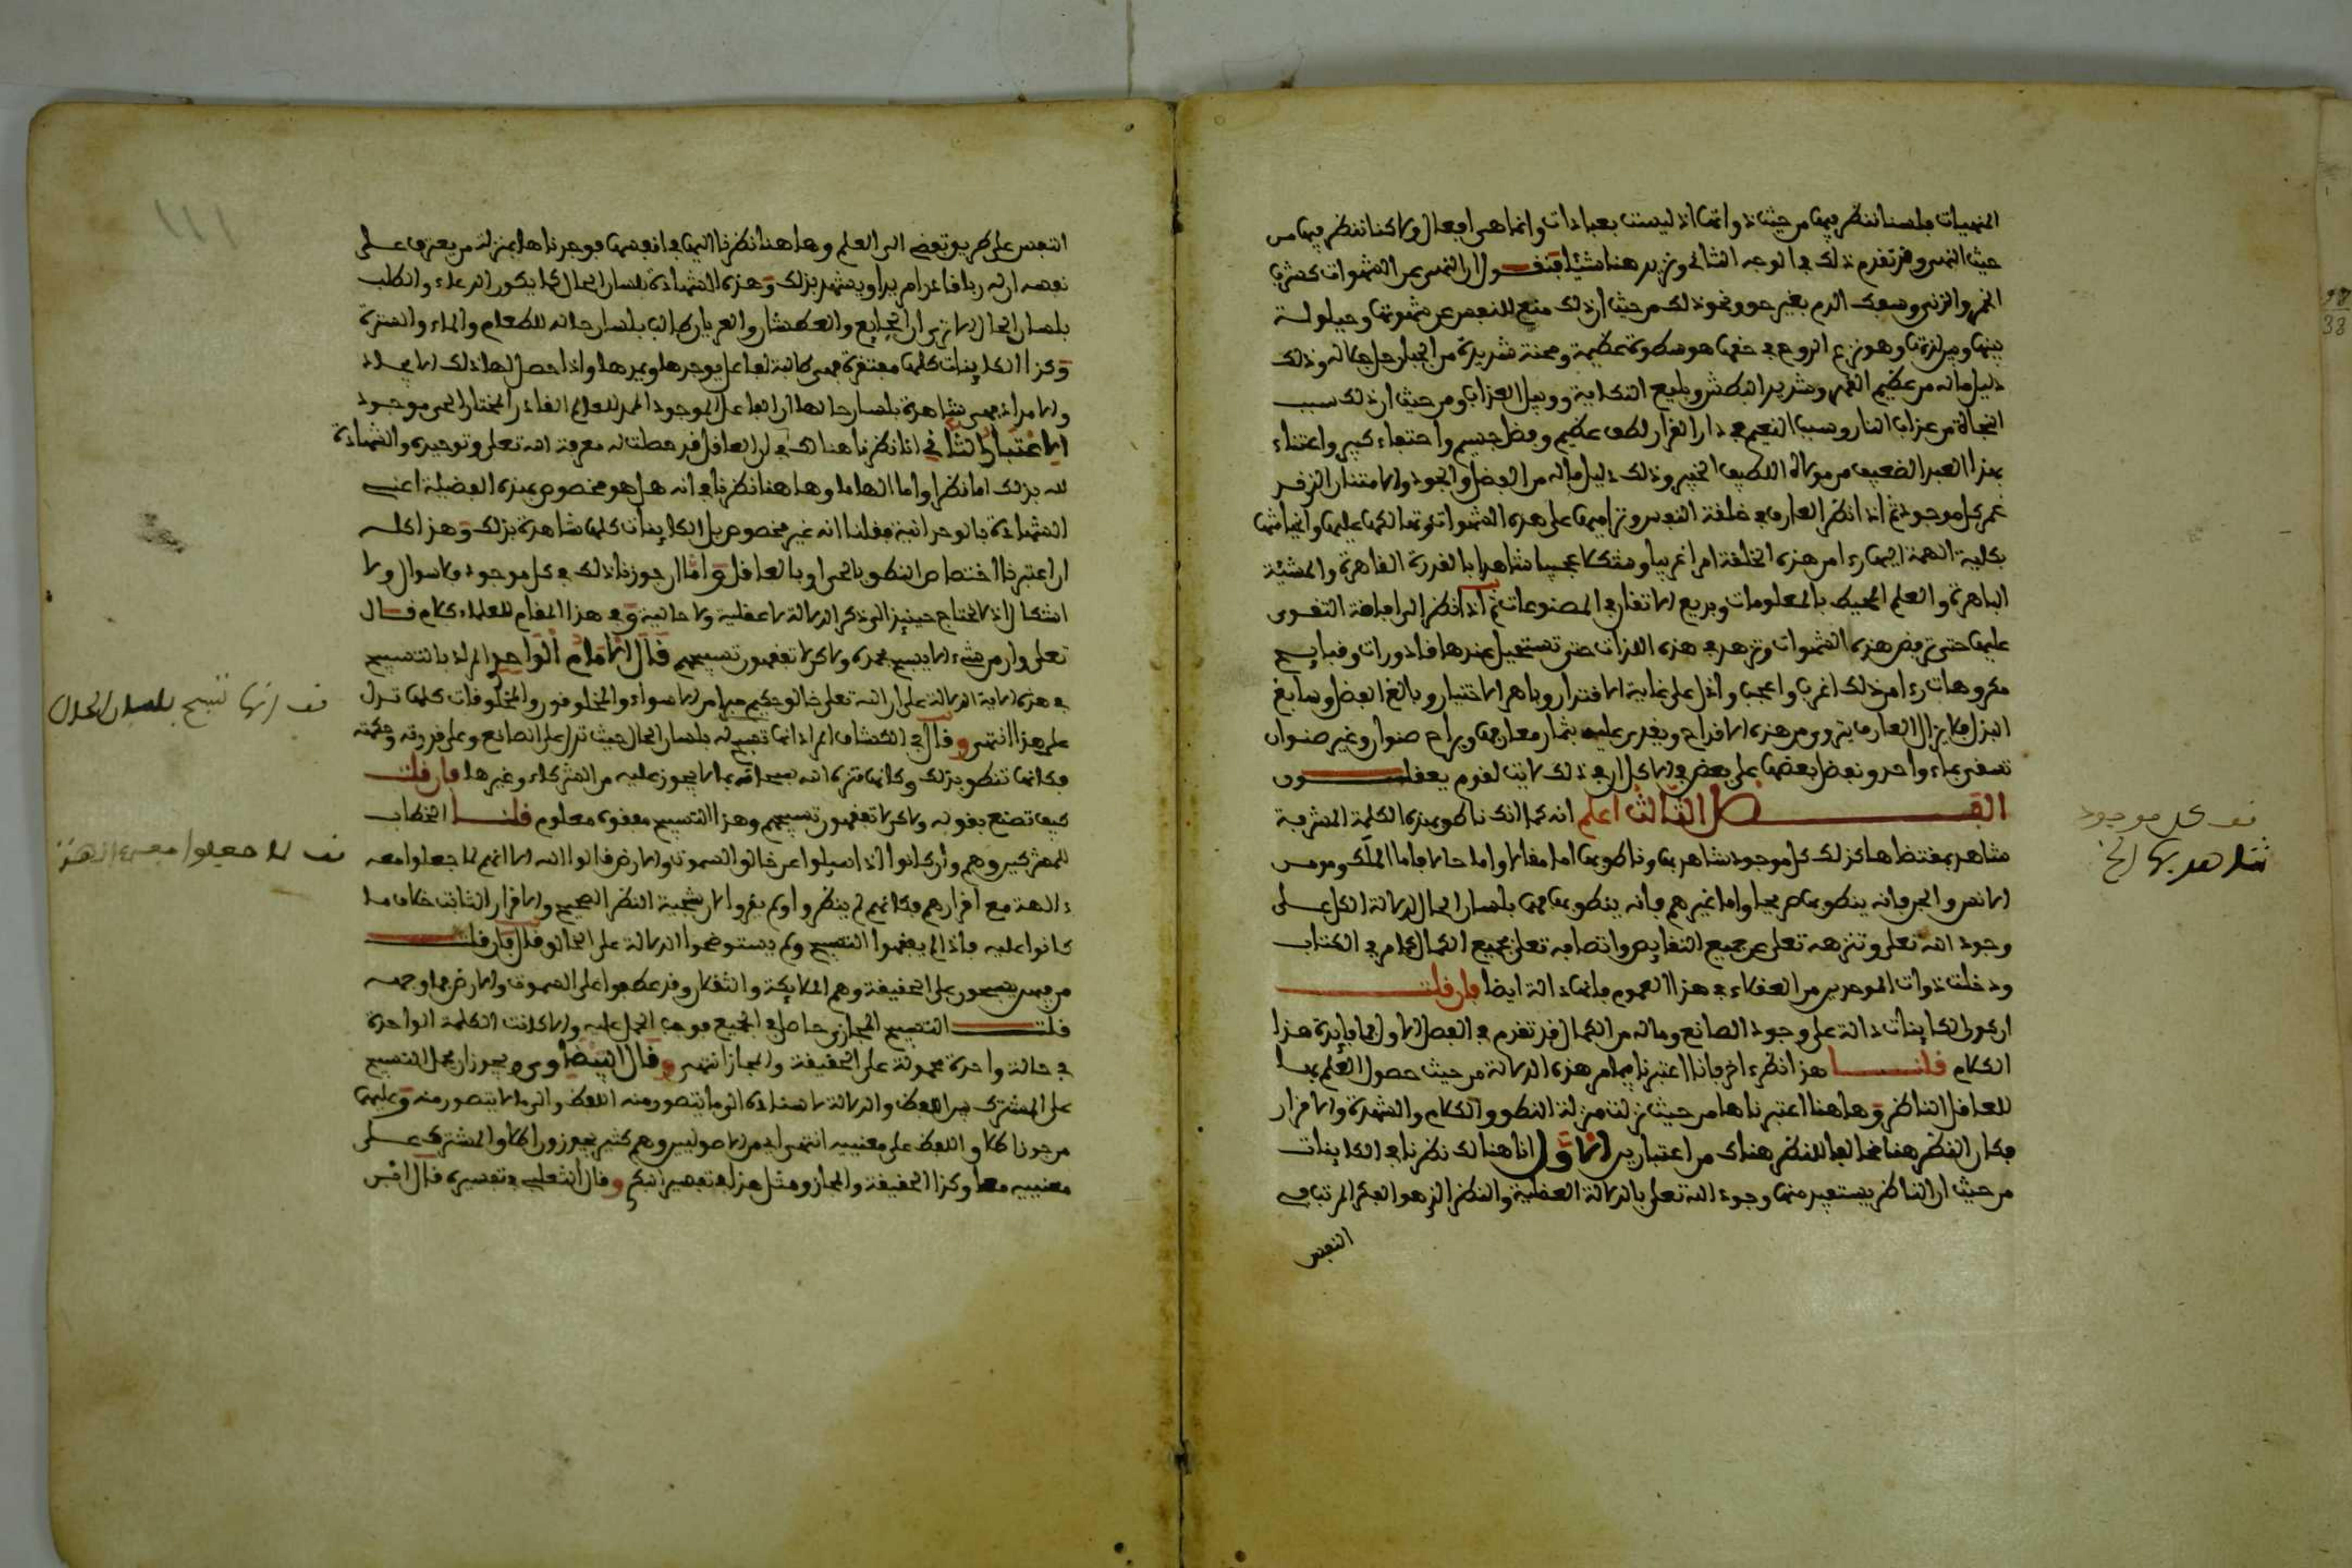 المنهيات فلسنا ننظر فيها من حيث ذواتها اذ ليست بعبادات وانما هي افعال ولاكنا ننظر فيها من
حيث النهي وقد تقدم ذلك في الوجه الثاني ونزيد هنا شيئا فنقول ان النهي عن الشهوات كشرب
الخمر والزنى وسفك الدم بغير حق ونحو ذلك من حيث ان ذلك منع للنفس عن شهوتها وحيلولة
بينها وبين لذتها وهو نزع الروح في حقها هو سطوة عظيمة ومحنة شديدة من الجبار جل جلاله وذلك
دليل ماله من عظيم القهر وشديد البطش وبليغ النكاية ووبيل العذاب ومن حيث ان ذلك سبب
النجاة من عذاب النار وسبب النعيم في دار القرار لطف عظيم وفضل جسيم واحتفاء كبير واعتناء
بهذا العبد الضعيف من مولاه اللطيف الخبير وذلك دليل ماله من الفضل والجود والامتنان الذي قد
غمر كل موجود ثم اذا نظر العارف في خلقة النفس وتراميها على هذه الشهوات وتهالكها عليها وانحياشها
بكلية الهمة اليها رءا من هذه الخلقة امرا غريبا وشكلا عجيبا شاهدا بالقدرة القاهرة والمشيئة
الباهرة والعلم المحيط بالمعلومات وبديع الاتقان في المصنوعات ثم اذا نظر الى افاضة التقوى
عليها حتى ترفض هذه الشهوات وتزهد في هذه اللذات حتى تستحيل عندها قاذورات وقبايح
مكروهات رءا من ذلك اغرب واعجب وادل على نهاية الاقتدار وباهر الاختيار وبالغ الفضل وسابغ
البذل فلا يزال العارف يتروى من هذه الاقداح ويغدى عليه بثمار معارفها ويراح صنوان وغير صنوان
تسقى بماء واحد ونفضل بعضها على بعض في الاكل ان في ذلك لايات لقوم يعقلون
الفصل الثالث اعلم انه كما انك ناطق بهذه الكلمة المشرفة
شاهد بمقتضاها كذلك كل موجود شاهد بها وناطق بها اما مقالا واما حالا فاما الملك ومومن
الانس والجن فانه ينطق بها صريحا واما غيرهم فانه ينطق بها بلسان الحال لدلالة الكل على
وجود الله تعلى وتنزهه تعلى عن جميع النقايص واتصافه تعلى بجميع الكمال كما مر في الكتاب
ودخلت ذوات الموحدين من العقلاء في هذا العموم فانها دالة ايضا فان قلت
ان كون الكاينات دالة على وجود الصانع وماله من الكمال قد تقدم في الفصل الاول فما فايدة هذا
الكلام قلنا هذا نظر ءاخر فانا اعتبرنا فيما مر هذه الدلالة من حيث حصول العلم بها
للعاقل الناظر وهاهنا اعتبرناها من حيث نزلت منزلة النطق والكلام والشهادة والاقرار
فكان النظر هنا مخالفا للنظر هناك من اعتبارين الاول انا هنالك نظرنا في الكاينات
من حيث ان الناظر يستفيد منها وجود الله تعلى بالدلالة العقلية والنظر الذي هو الفكر المرتب في
النفس
قف كل موجود
شاهد بها الخ
111
النفس على طريق تفضي الى العلم وهاهنا نظرنا اليها في انفسها فوجدناها بمنزلة من يعترف على
نفسه ان له ربا قاهرا مريدا ويشهد بذلك وهذه الشهادة بلسان الحال كما يكون الدعاء والطلب
بلسان الحال الا ترى ان الجايع والعطشان والعريان طالب بلسان حاله للطعام والماء والسترة
وكذا الكاينات كلها مفتقرة فهي طالبة لفاعل يوجدها ويمدها واذا حصل لها ذلك الايجاد
والامداد فهي شاهدة بلسان حالها ان الفاعل الموجود الممد للعالم القادر المختار الحي موجود
الاعتبار الثاني انا نظرنا هنالك في ان العاقل قد حصلت له معرفة الله تعلى وتوحيده والشهادة
لله بذلك اما نظرا واما الهاما وهاهنا نظرنا في انه هل هو مخصوص بهذه الفضيلة اعني
الشهادة بالوحدانية فقلنا انه غير مخصوص بل الكاينات كلها شاهدة بذلك وهذا كله
ان اعتبرنا اختصاص النطق بالحي او بالعاقل واما ان جوزنا ذلك في كل موجود فلا سوال ولا
اشكال اذ لا يحتاج حينيذ الى ذكر الدلالة لا عقلية ولا حالية وفي هذا المقام للعلماء كلام قال
تعلى وان من شيء الا يسبح بحمده ولاكن لا تفقهون تسبيحهم قال الامام الواحدي المراد بالتسبيح
في هذه الاية الدلالة على ان الله تعلى خالق حكيم مبرا من الاسواء والمخلوقون والمخلوقات كلها تدل
على هذا انتهى وقال في الكشاف المراد انها تسبح له بلسان الحال حيث تدل على الصانع وعلى قدرته وحكمته
فكانها تنطق بذلك وكانها تنزه الله سبحانه عما لا يجوز عليه من الشركاء وغيرها فان قلت
كيف تصنع بقوله ولاكن لا تفقهون تسبيحهم وهذا التسبيح مفقوه معلوم قلنا الخطاب
للمشركين وهم وان كانوا اذا سيلوا عن خالق السموت والارض قالوا الله الا انهم لما جعلوا معه
ءالهة مع اقرارهم فكانهم لم ينظروا ولم يقروا لان نتيجة النظر الصحيح والاقرار الثابت خلاف ما
كانوا عليه فاذا لم يفقهوا التسبيح ولم يستوضحوا الدلالة على الخالق قال فان قلت
من فيهن يسبحون على الحقيقة وهم الملايكة والثقلان وقد عطفوا على السموت والارض فما وجهه
قلت التسبيح المجازي حاصل في الجميع فوجب الحمل عليه والا كانت الكلمة الواحدة
في حالة واحدة محمولة على الحقيقة والمجاز انتهى وقال البيضاوي ويجوز ان يحمل التسبيح
على المشترك بين اللفظ والدلالة لاسناده الى ما يتصور منه اللفظ والى ما لا يتصور منه وعليهما
من جوز اطلاق اللفظ على معنييه انتهى اي من الاصوليين وهم كثير يجوزون اطلاق المشترك على
معنييه معا وكذا الحقيقة والمجاز ومثل هذا في تفسير النيكم وقال الثعلبي في تفسيره قال
قف انها تسبح بلسان الحال
قف لما جعلوا معه ءالهة